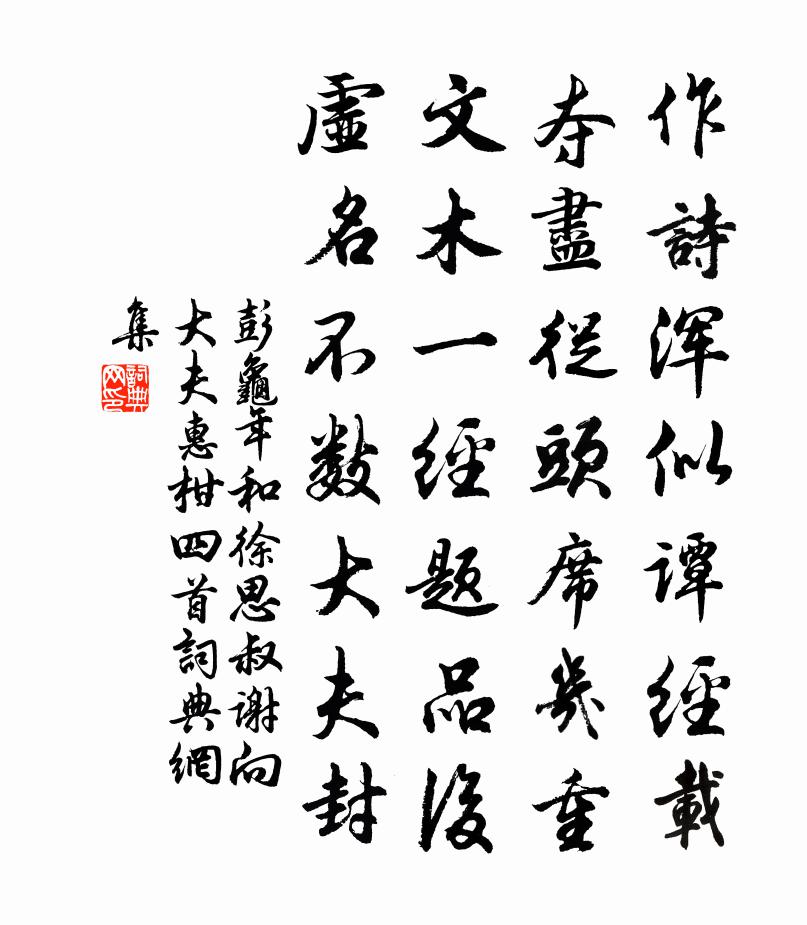 作詩渾似譚經載
夺盡從頭席幾重
文木一經題品後
虛名不數大夫封
彭龜年和徐思叔謝向
大夫惠柑四首詞典網
集
詞典
网印